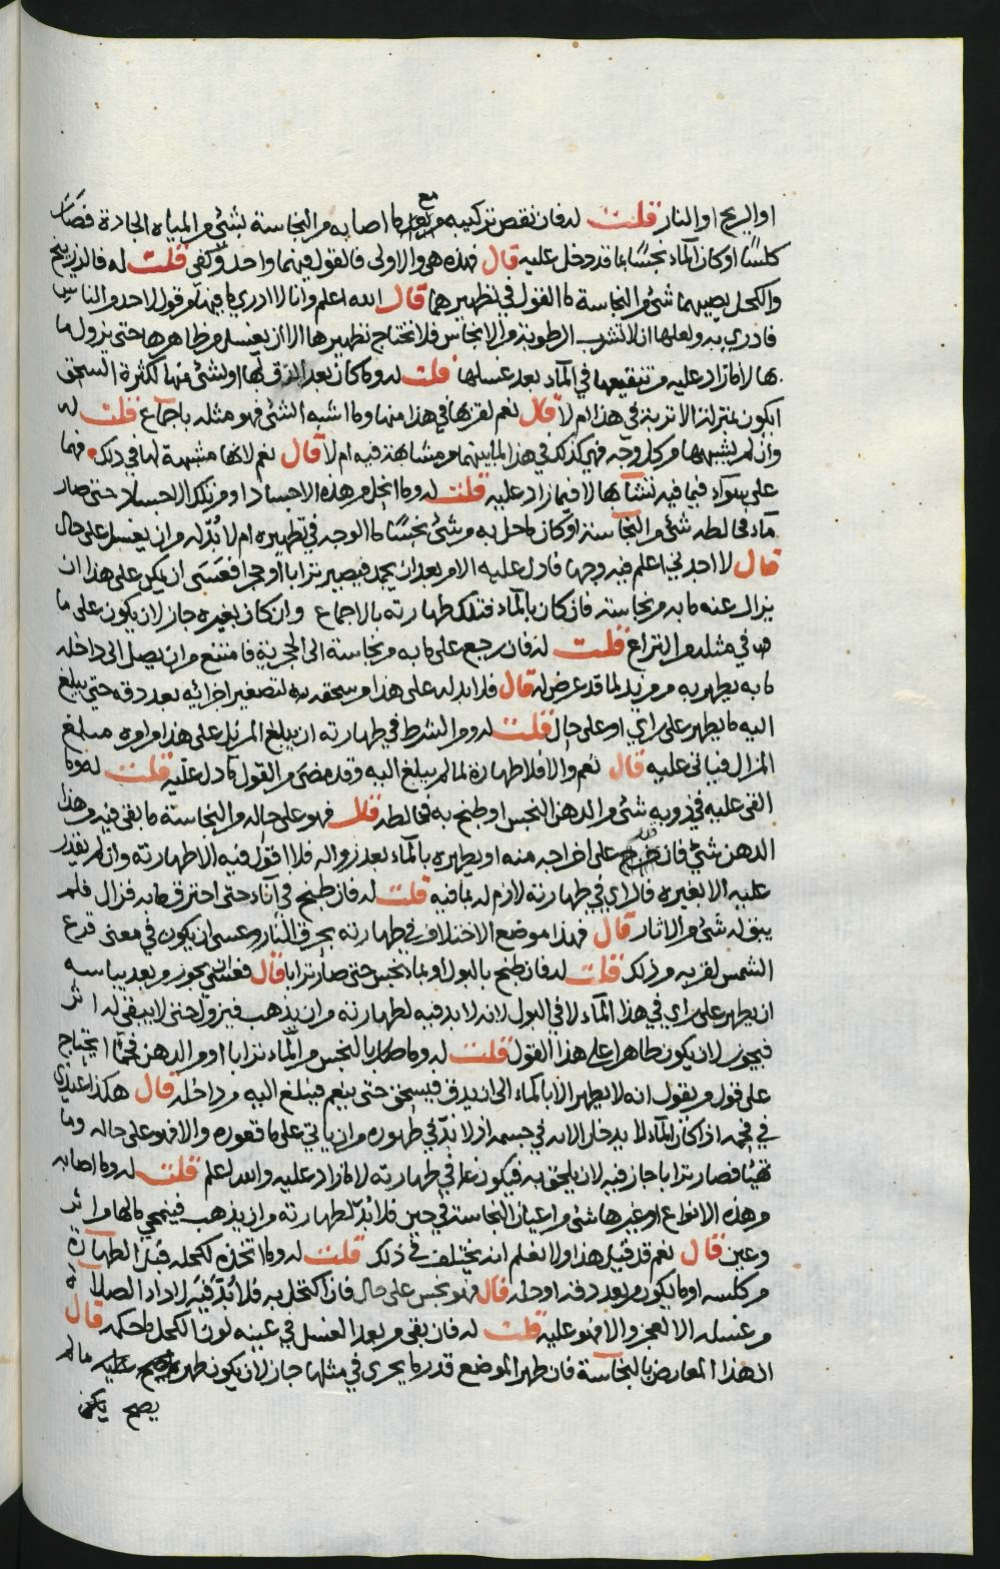 او الريح او النار قلت له فان نقص تركيبه مع ما اصابه من النجاسة بشئ من المياه الحادة فصار
كلسًا او كان الماء نجسًا بما قد دخل عليه قال فهذه هي والاولى فالقول فيهما واحد وكفى قلت له فالزرنيخ
والكحل يصيبهما شئ من النجاسة ما القول في تطهيرهما قال الله اعلم وانا لا ادري ما فيهما من قول لاحد من الناس
فادري به ولعلها ان لا تشرب الرطوبة من الانجاس فلا تحتاج في تطهيرها الا ان يغسل من ظاهرها حتى يزول ما
بها لا ما زاد عليه من تنقيعها في الماء بعد غسلها قلت له وما كان بعد الدق لها او شئ منها لكثرة السحق
ايكون بمنزلة الاتربة في هذا ام لا قال نعم لقربها في هذا منها وما اشبه الشئ فهو مثله باجماع قلت له
وان لم يشبهها من كل وجه فهي كذلك في هذا لما بينهما من مشابهة فيه ام لا قال نعم لانها مشبهة لها في ذلك فهما
على سواء فيما فيه تشابها لا فيما زاد عليه قلت له وما انحل من هذه الاجساد او من تلك الاجساد حتى صار
ماء فخالطه شئ من النجاسة او كان ما حل به من شئ نجسًا ما الوجه في تطهيره ام لا بد له من ان يغسل على حال
قال لا اجدني اعلم فيه وجها فادل عليه الا من بعد ان يجمد فيصير ترابا او حجرا فعسى ان يمكن على هذا ان
يزال عنه ما به من نجاسة فان كان بالماء فتلك طهارته بالاجماع وان كان بغيره جاز لان يكون على ما
في مثله من النزاع قلت له فان رجع على ما به من نجاسة الى الحجرية فامتنع من ان يصل الى داخله
ما به يطهر به من مزيد لما قد عرض له قال فلا بد له على هذا من سحقه لتصغير اجزائه بعد دقه حتى يبلغ
اليه ما يطهر على راي او على حال قلت له ومن الشرط في طهارته ان يبلغ المزيل على هذا من امره مبلغ
المزال فياتي عليه قال نعم والا فلا طهارة لما لم يبلغ اليه وقد مضى من القول ما دل عليه قلت له وما
القي عليه في ذوبه شئ من الدهن النجس او طبخ به فخالطه قال فهو على حاله من النجاسة ما بقي فيه من هذا
الدهن شئ فان قدر على اخراجه منه او يطهره بالماء بعد زواله فلا اقول فيه الا طهارته وان لم يقدر
عليه الا بغيره فالراي في طهارته لازم له بما فيه قلت له فان طبخ في اناء حتى احترق ما به فزال فلم
يبق له شئ من الاثار قال فهذا موضع الاختلاف في طهارته بحرق النار وعسى ان يكون في معنى قرع
الشمس لقربه من ذلك قلت له فان طبخ بالبول او بماء نجس حتى صار ترابا قال فعسى يجوز من بعد يباسه
ان يطهر على راي في هذا الماء لا في البول لانه لا بد فيه لطهارته من ان يذهب فيزول حتى لا يبقى له اثر
فيجوز لان يكون طاهرا على هذا القول قلت له وما صار بالنجس من الماء ترابا او من الدهن فحما ايحتاج
على قول من يقول انه لا يطهر الا بالماء الى ان يدق فيسحق حتى ينعم فيبلغ اليه من داخله قال هكذا عندي
في فحمه اذا كان الماء لا يدخل الا به في جسمه اذ لا بد في طهوره من ان ياتي على ما قعوره والا فهو على حاله وما
تهيا فصار ترابا جاز فيه لان يلحق به فيكون في طهارته لا ما زاد عليه والله اعلم قلت له وما اصابه
من هذه الانواع او غيرها شئ من اعيان النجاسة في حين فلا بد لطهارته من ان يذهب فينمحي ما لها من اثر
وعين قال نعم قد قيل هذا ولا نعلم انه يختلف في ذلك قلت له وما اتخذه لكحله قبل الطهارة
من كلسه او ما يكون من بعد دقه او حله قال فهو نجس على حال فان اكتحل به فلا بد فيه لاداء الصلاة
من غسله الا لعجز والا فهو عليه قلت له فان بقي من بعد الغسل في عينه لون الكحل ما حكمه قال
ان هذا المعارض بالنجاسة فان طهر الموضع قدر ما يجزي في مثلها جاز لان يكون طهر ما لم
يصح يكن